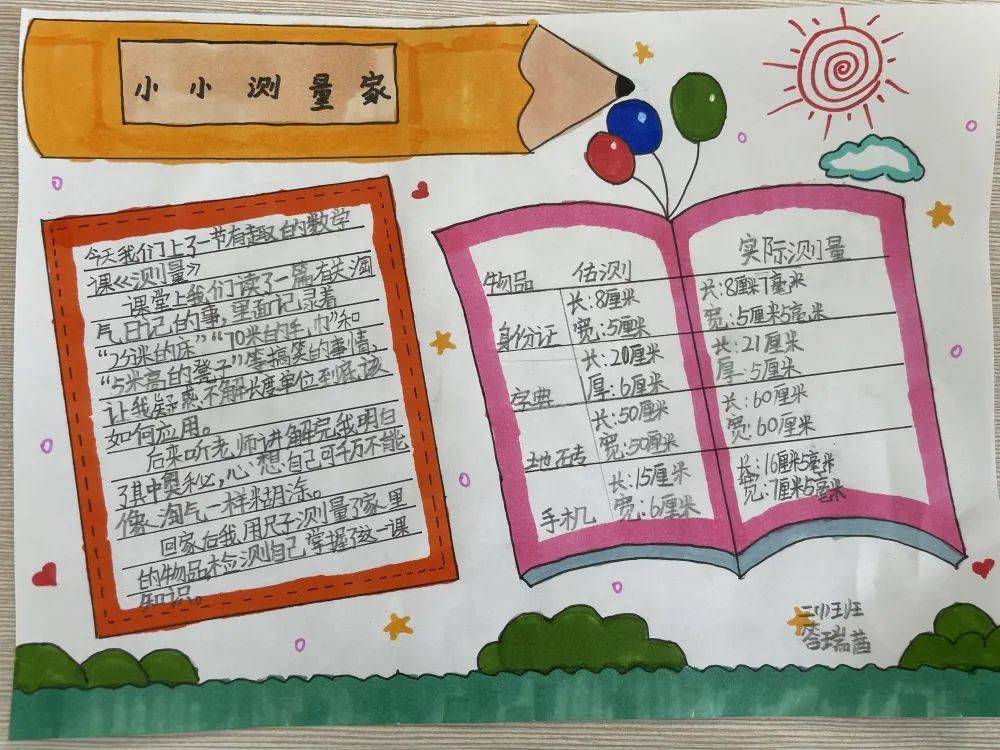 小小测量家
今天我们上了一节有趣的数学
课《测量》
课堂上我们读了一篇有关淘
气日记的事，里面记录着
“2分米的床”“70米的毛巾”和
“5米高的凳子”等搞笑的事情，
让我疑惑不解长度单位到底该
如何应用。
后来听老师讲解完我明白
了其中奥秘，心想自己可千万不能
像淘气一样糊涂。
回家后我用尺子测量了家里
的物品，检测自己掌握了这一课
知识。
物品 估测 实际测量
身份证 长：8厘米 长：8厘米7毫米
宽：5厘米 宽：5厘米5毫米
字典 长：20厘米 长：21厘米
厚：6厘米 厚：5厘米
土地砖 长：50厘米 长：60厘米
宽：50厘米 宽：60厘米
手机 长：15厘米 长：16厘米5毫米
宽：6厘米 宽：7厘米5毫米
瑞茜